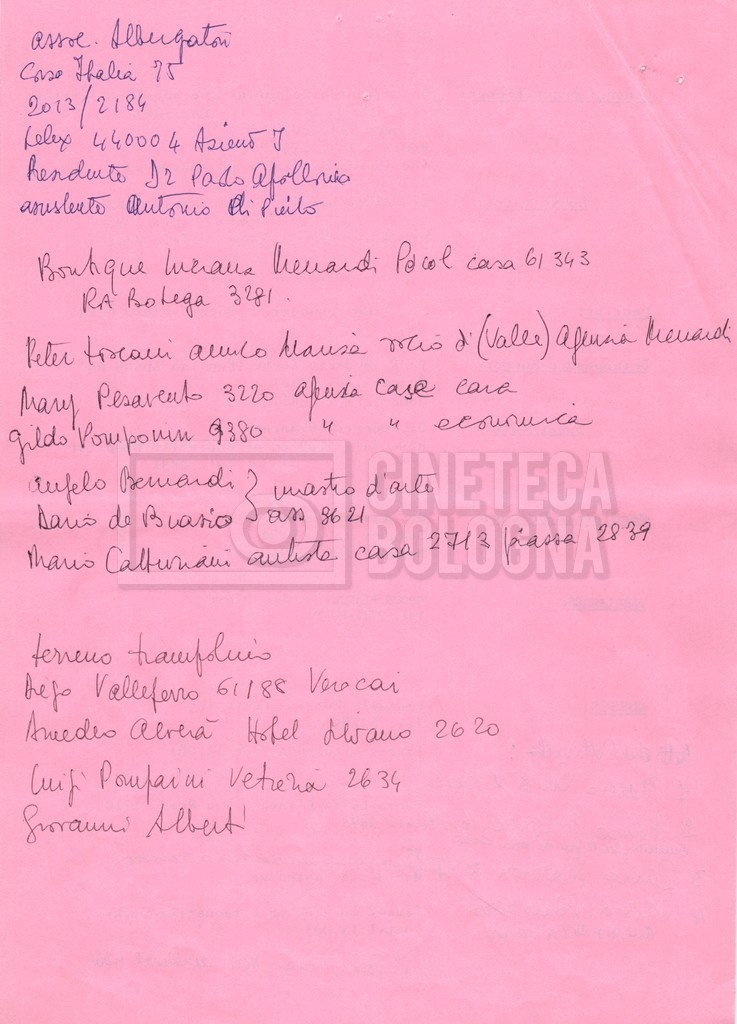 assoc. Albergatori
Corso Italia 75
2013/2184
telex 440004 Asiend I
Presidente Dr Paolo Apollonio
assistente Antonio Di
Boutique Luciana Menardi Pocol casa 61343
RA Botega 3281.
Peter Toscani amico Marisa socio di (Valle) Agenzia Menardi
Mary Pesavento 3220 agenzia case cara
Gildo Pompanin 9380 " " economica
Angelo Bernardi } mastro d'arte
Dario de Biasio } ass 8621
Mario autista casa 2713 piazza 2839
CINETECA
BOLOGNA
terreno trampolino
Diego Valleferro 61188 Verocai
Amedeo Alverà Hotel 2620
Luigi Pompanini Vetreria 2634
Giovanni Alberti